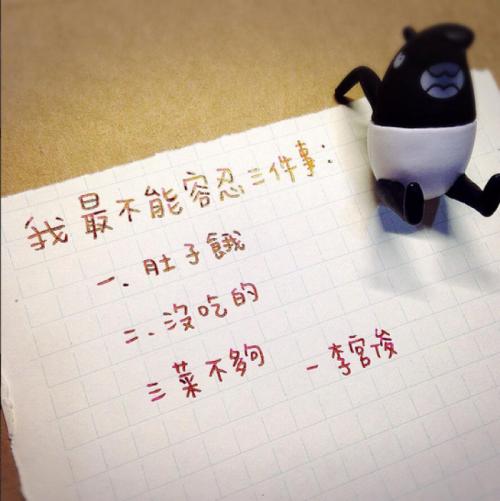 我最不能容忍三件事:
一.肚子餓
二、沒吃的
三菜不夠 -李宮俊